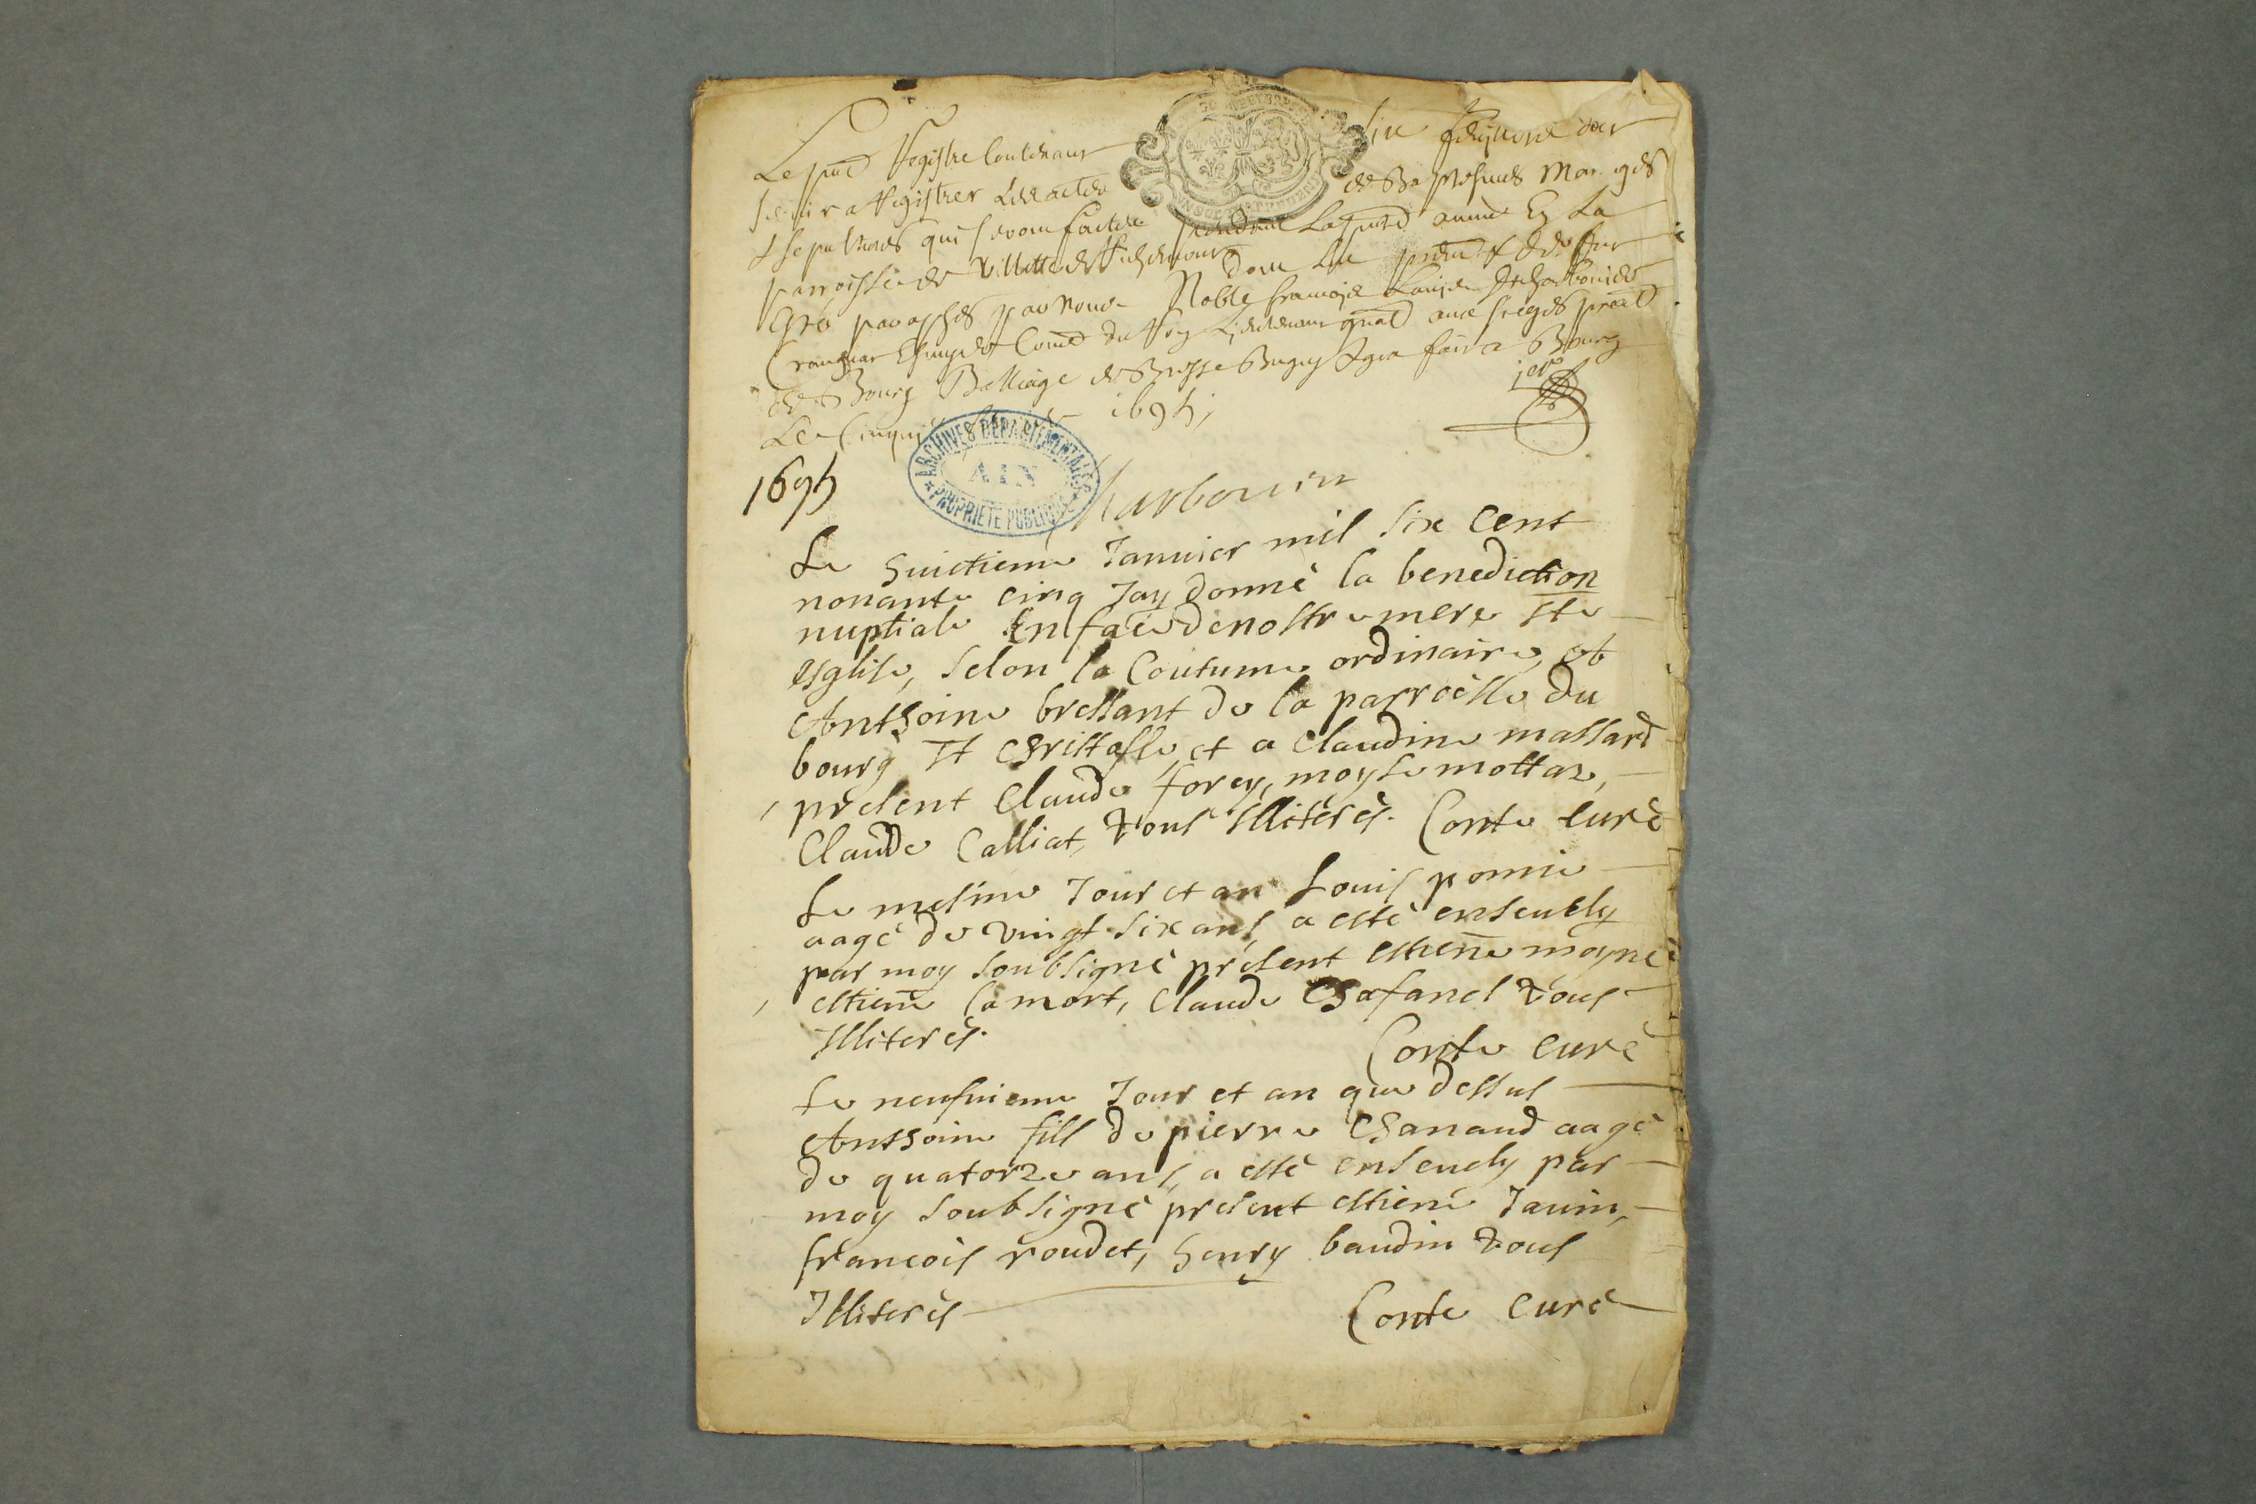 Le pnt Registre Contenant six feüillets pour
servir a Registrer Les actes de Baptesmes Mariages
& sepultures qui seront faictes pendant La pnte année En La
parroisse de Villette de Richemont Dont Les
par Nous Noble françois Louis De Charbonnier
Crangeac Escuyer Conser du Roy Lieutenant gnal aux sieges
de Bourg Balliage de Bresse Bugey & gex fait a Bourg
Le Cinquie 1695
1695
ARCHIVES DÉPARTEMENTALES
AIN
PROPRIÉTÉ PUBLIQUE
Charbonnier
Le huictieme Januier mil six cent
nonante cinq Jay donné la benediction
nuptiale En face de nostre mere ste
esglise, selon la Coutume ordinaire, et
Anthoine bressant de la parroisse du
bourg st christofle, et a claudine massard
present claude forey, moyse mottaz,
Claude Calliat, tous Illiterés. Conte curé
Le mesme Jour et an Louis pomie
aagé de vingt six ans a esté enseuely
par moy soubsigné present estiene moyne
estiene lamort, claude Chafanel tous
Illiterés. Conte curé
Le neufuieme Jour et an que dessus
Anthoine fils de pierre Chanaud aagé
de quatorze ans, a esté enseuely par
moy soubsigné present estiene Janin,
francois roudet, henry baudin tous
Illiterés Conte curé